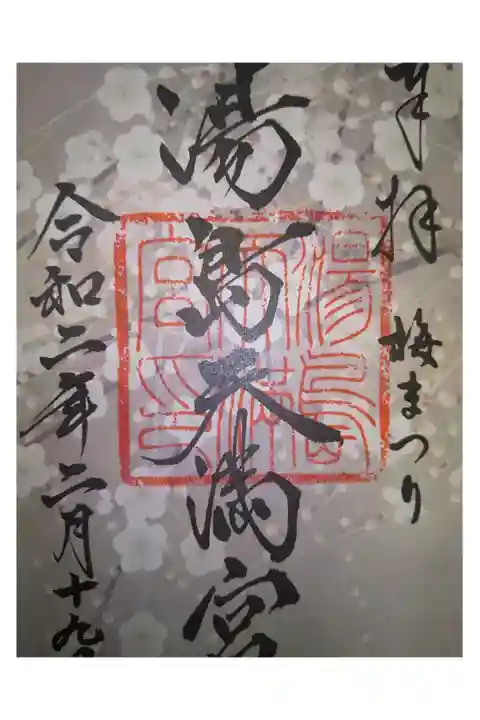 奉拝 梅まつり
湯島天満宮
令和二年二月十九日
湯島
天満
宮之印